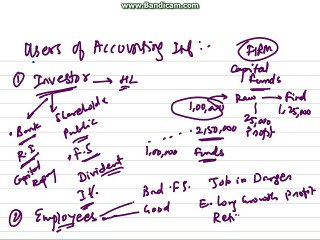 www.Bandicam.com
Users of Accounting Inf :-
FIRM
Capital
funds
① Investor → HL
1,00,000
Raw → Find
1,25,000
25,000
Profit
• Bank
R.I
Capital
Shareholde
Public
• F.S
Divident
2,50,000
1,00,000 Funds
② Employees
Bad F.S. Job in Danger
Good
Long Growth Profit